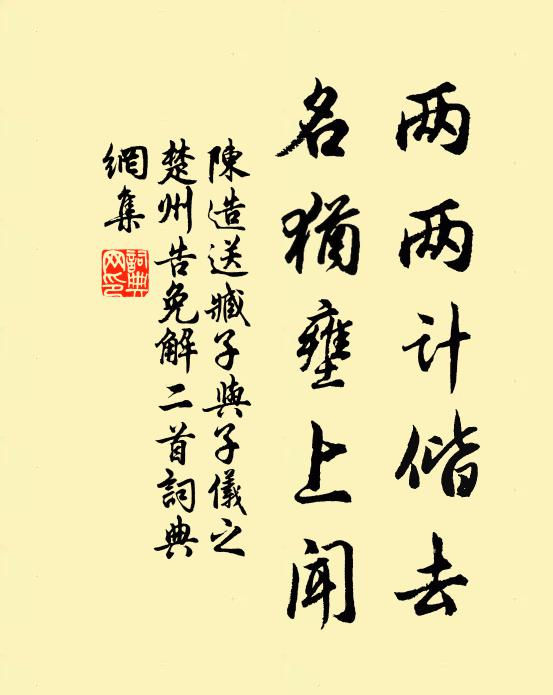 两两计偕去
名犹壅上闻
陳造送臧子與子儀之
楚州告免解二首詞典
網集
詞典網印